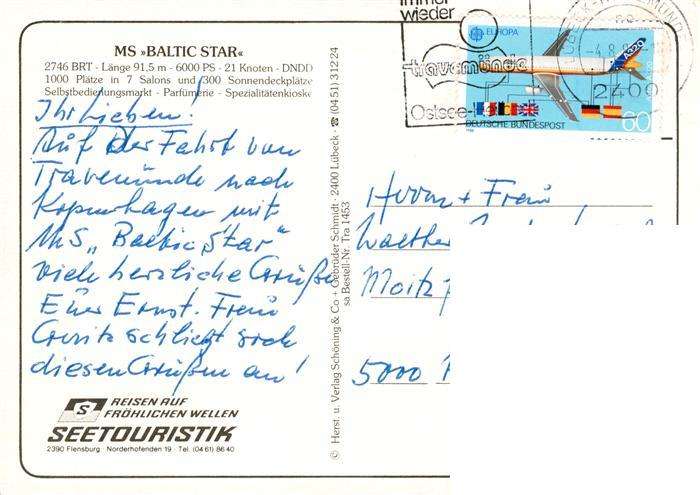 MS »BALTIC STAR«
2746 BRT - Länge 91,5 m - 6000 PS - 21 Knoten - DNDD
1000 Plätze in 7 Salons und 300 Sonnendeckplätze
Selbstbedienungsmarkt - Parfümerie - Spezialitätenkioske
Ihr Lieben!
Auf der Fahrt von
Travemünde nach
Kopenhagen mit
MS „Baltic Star“
viele herzliche Grüße
Euer Ernst. Frau
schließt sich
diesen Grüßen an!
S
REISEN AUF
FRÖHLICHEN WELLEN
SEETOURISTIK
2390 Flensburg Norderhofenden 19 · Tel. (04 61) 86 40
© Herst. u. Verlag Schöning & Co + Gebrüder Schmidt · 2400 Lübeck · ☎ (04 51) 3 12 24
sa Bestell-Nr. Tra 1453
immer
wieder
travemünde
Ostsee-
EUROPA
A320
DEUTSCHE BUNDESPOST
60
2400
Herrn + Frau
Walther
Moitz
5000